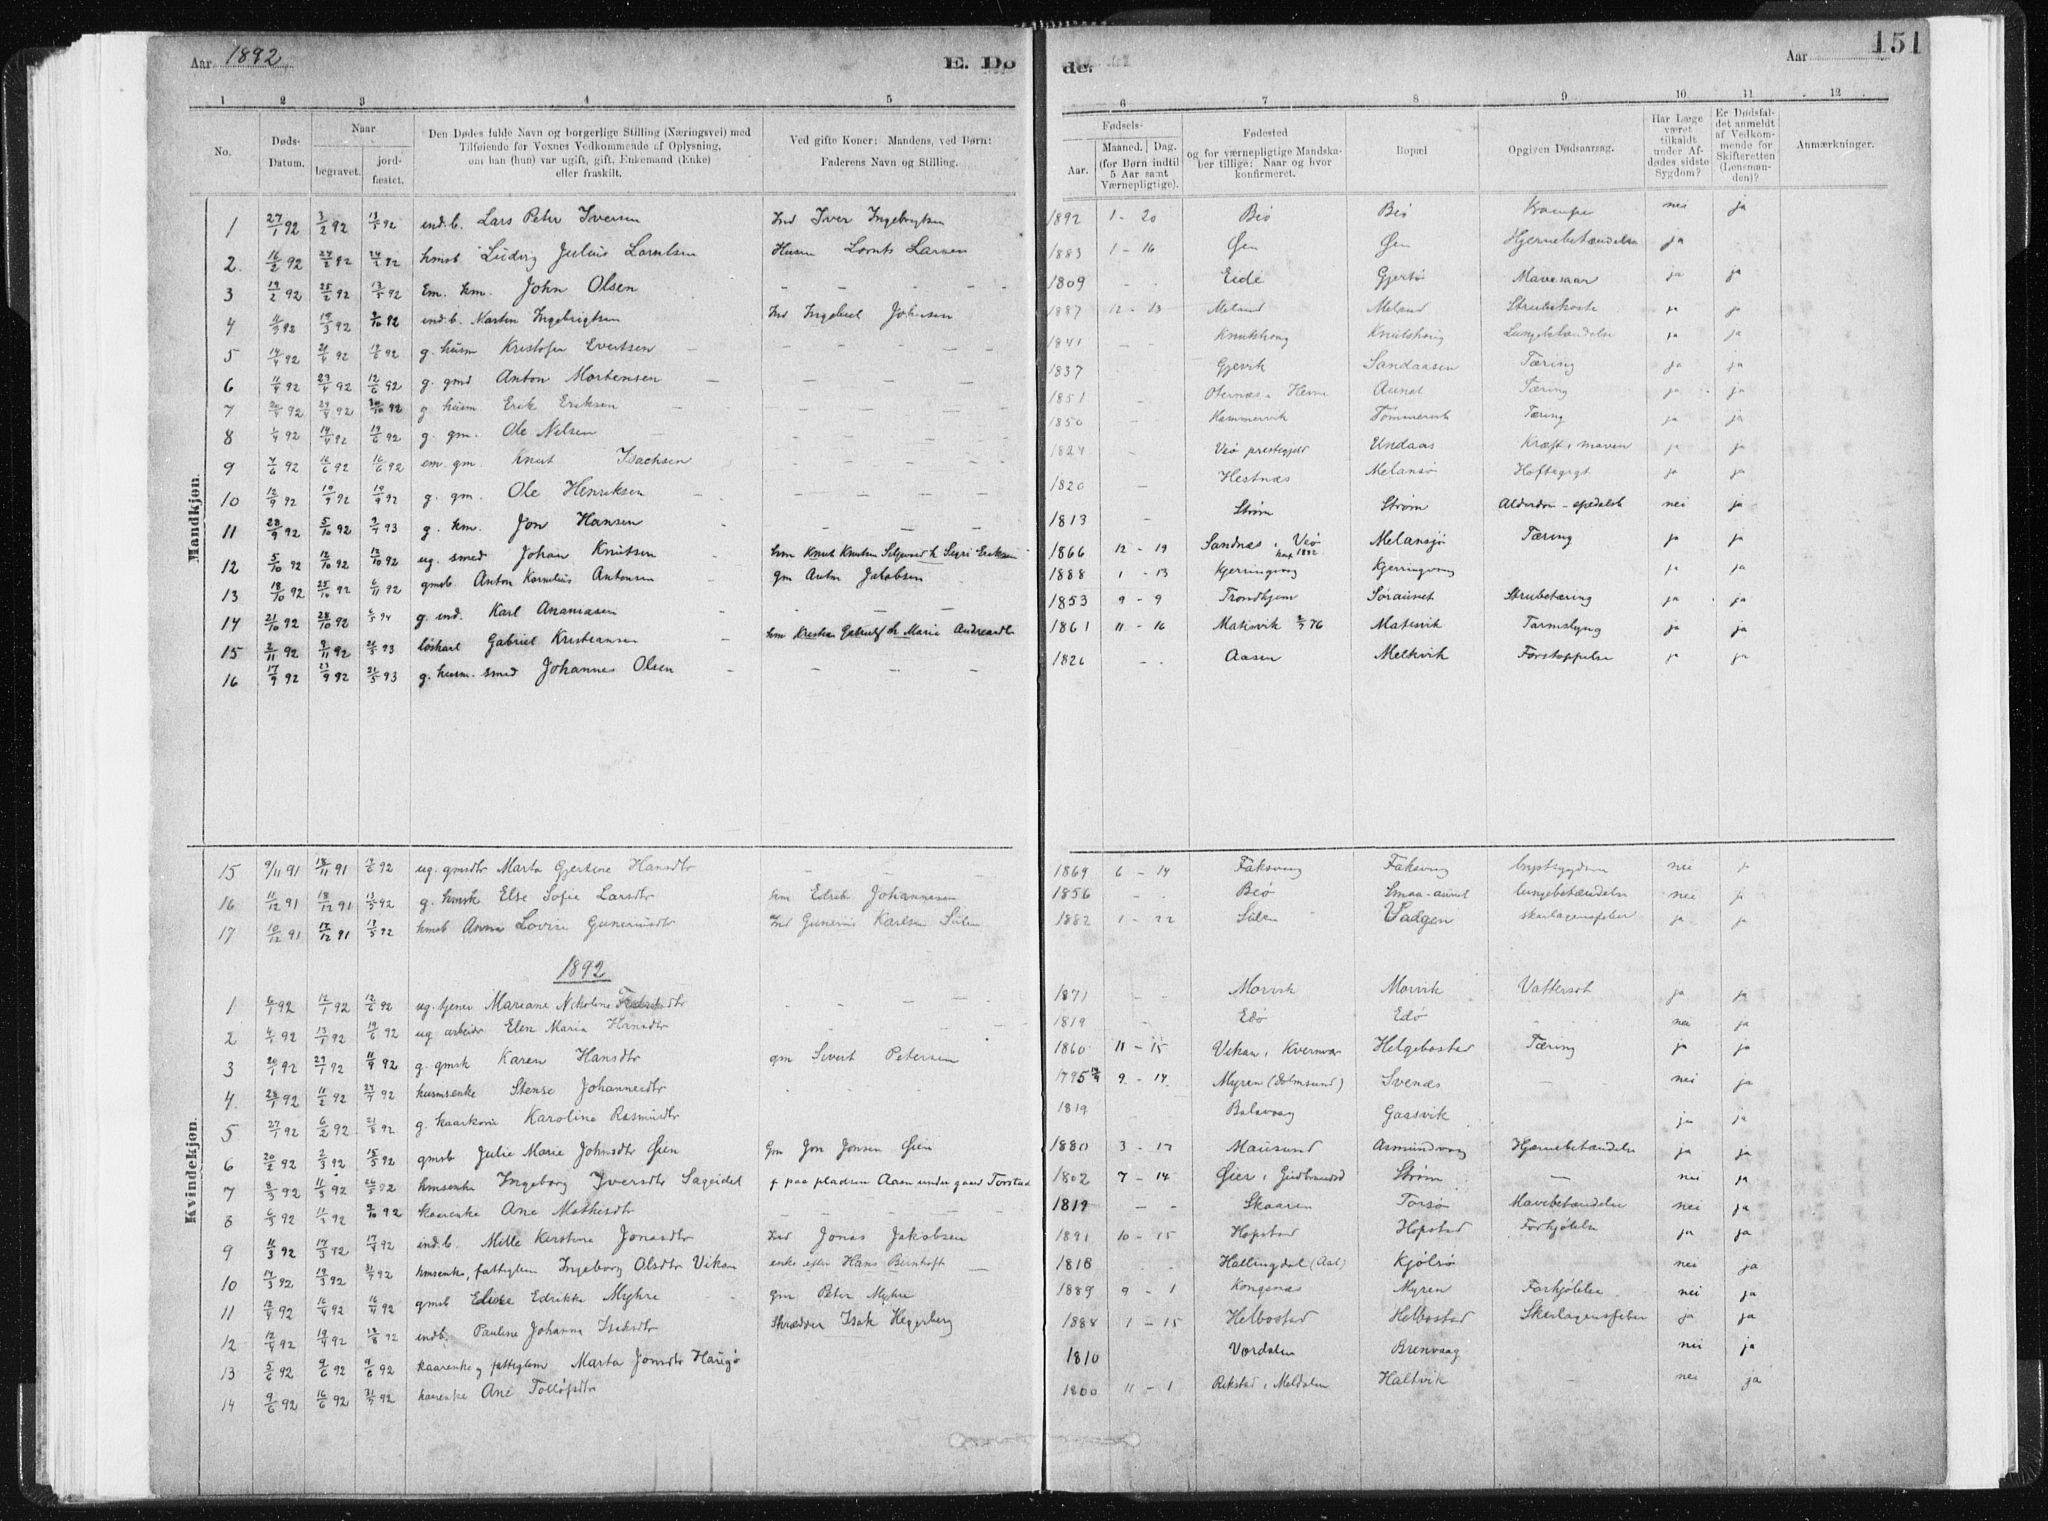 Aar 1892 E. Døde. Aar 151
1 2 3 4 5 6 7 8 9 10 11 12
No. Døds-Datum. Naar begravet. jordfæstet. Den Dødes fulde Navn og borgerlige Stilling (Næringsvei) med Tilføiende for Voxnes Vedkommende af Oplysning, om han (hun) var ugift, gift, Enkemand (Enke) eller fraskilt. Ved gifte Koner: Mandens, ved Børn: Faderens Navn og Stilling. Fødsels- Aar. Maaned. Dag. (for Børn indtil 5 Aar samt Værnepligtige). Fødested og for værnepligtige Mandskaber tillige: Naar og hvor konfirmeret. Bopæl Opgiven Dødsaarsag. Har Læge været tilkaldt under Afdødes sidste Sygdom? Er Dødsfaldet anmeldt af Vedkommende for Skifteretten (Lensmanden)? Anmærkninger.
Mandkjøn.
1 27/1 92 3/2 92 13/5 92 ind.b. Lars Peter Iversen Ind Iver Ingebrigtsen 1892 1 - 20 Beø Beø Krampe nei ja
2. 16/2 92 24/2 92 92 hmsb Ludvig Julius Larntsen Husm Lornts Larsen 1883 1 - 16 Øen Øen Hjernebetændelse ja
3 19/2 92 25/2 92 13/5 92 Em. hm. John Olsen 1809 Eide Gjertø Mavesaar ja ja
4 11/3 92 19/3 92 9/10 92 ind.b. Martin Ingebrigtsen Ind Ingebret Johnsen 1887 12 - 13 Melsund Melsund Strubehoste ja ja
5 14/4 92 21/4 92 92 g. husm Kristofer Evertsen 1841 Knutshoug Knutshoug Lungebetændelse ja ja
6 11/4 92 23/4 92 12/6 92 g. gmd Anton Mortensen 1837 Gjevik Sandaasen Tæring ja ja
7 20/4 92 29/4 92 92 g. husm. Erik Eriksen 1851 Oternæs i Hevne Aunet Tæring ja ja
8 92 14/4 92 19/6 92 g. gm. Ole Nilsen 1850 Hammervik Tømmervik Tæring ja ja
9 7/6 92 16/6 92 16/6 92 em. gm Knut Isachsen 1824 Veø prestegjeld Undaas Kræft i maven ja ja
10 12/9 92 19/9 92 19/9 92 g. gm. Ole Henriksen 1820 Hestnæs Melansø Hoftegigt ja ja
11 28/9 92 5/10 92 93 g. hm. Jon Hansen 1813 Strøm Strøm Alderdom - spedalsk nei ja
12 5/10 92 12/10 92 12/10 92 ug. smed Johan Knutsen hm Knut Knutsen h Sigri Eriksen 1866 12 - 19 Sandnæs i Veø Melansjø Tæring ja ja
13 18/10 92 25/10 92 6/11 92 gmsb. Anton Kornelius Antonsen gm Anton Jakobsen 1888 1 - 13 Kjerringvaag Kjerringvaag ja ja
14 21/10 92 28/10 92 94 g. ind. Karl Ananiasen 1853 9 - 9 Trondhjem Søraunet Strubetæring ja ja
15 2/11 92 9/11 92 21/5 93 løskarl Gabriel Kristiansen hm Kristian Gabrielsen h Maria Andreasdtr 1861 11 - 16 Matisvik 76 Matisvik Tarmslyng ja ja
16 17/9 92 23/9 92 21/5 93 g. husm. smed Johannes Olsen 1826 Aasen Melkvik Forstoppelse ja ja
Kvindekjøn.
15 9/11 91 18/11 91 92 ug. gmsdtr Marta Gjertine Hansdtr 1869 6 - 14 Faksvaag Faksvaag brystsygdom nei ja
16 11/12 91 18/12 91 13/5 92 g. hmsk Else Sofie Larsdtr hm Edrik Johannesen 1856 Beø Smaa-aunet lungebetændelse nei ja
17 10/12 91 17/12 91 13/5 92 hmsb Anna Lovise Guneriusdtr Ind Gunerius Karlsen Sulen 1882 1 - 22 Sulen Valgen skarlagensfeber ja ja
1892
1 6/1 92 12/1 92 12/6 92 ug. tjener Mariane Nikoline 1871 Morvik Morvik Vattersot ja ja
2 92 13/1 92 19/6 92 ug arbeider Elen Maria Hansdtr 1819 Edø Edø nei ja
3 20/1 92 29/1 92 11/9 92 g. gmsk Karen Hansdtr gm Sivert Petersen 1860 11 - 15 Vikan i Kvernvær Helgebostad Tæring ja ja
4. 28/1 92 11/2 92 92 husmsenke Stense Johannesdtr 1795 9 - 14 Myren (Dolmsund) Svenæs nei ja
5 27/1 92 6/2 92 21/8 92 g. kaarkone Karoline Rasmusdtr 1819 Balsvaag Gaasvik ja ja
6 20/2 92 2/3 92 15/5 92 gmsb Julie Marie Johnsdtr Øien Gm Jon Jonsen Øien 1880 3 - 17 Mausund Asmundvaag Hjernebetændelse ja ja
7 8/3 92 11/3 92 92 hmsenke Ingeborg Iversdtr Sageidet f paa pladsen Aaen under gaard Torstad 1802 7 - 14 Øien i Strøm nei ja
8 6/3 92 11/3 92 9/10 92 kaarenke Ane Mathisdtr 1819 Skaaren Torsø Mavebetændelse nei ja
9 11/3 92 17/3 92 17/4 92 ind.b. Mille Kerstina Jonasdtr Ind Jonas Jakobsen 1891 10 - 15 Hopstad Hopstad Forkjølelse ja ja
10 14/3 92 19/3 92 92 hmsenke, fattiglem Ingeborg Olsdtr Vikan enke efter Hans Bernhoft 1818 Hallingdal (Aal) Kjølsø nei ja
11 12/4 92 16/4 92 16/4 92 gmsb Elise Edrikke Myhre gm Peter Myhre 1889 9 - 1 Kongsnæs Myren Forkjølelse nei ja
12 12/4 92 19/4 92 92 indb. Pauline Johanna Isaksdtr Skrædder Isak Heggerberg 1888 1 - 15 Helbostad Helbostad Skarlagensfeber ja ja
13 5/6 92 9/6 92 9/6 92 kaarenke og fattiglem Marta Jonsdtr Havigø 1810 Værdalen Brenvaag nei ja
14 9/6 92 16/6 92 92 kaarenke Ane Tollefsdtr 1800 11 - 1 Rikstad i Meldalen Haltvik nei ja